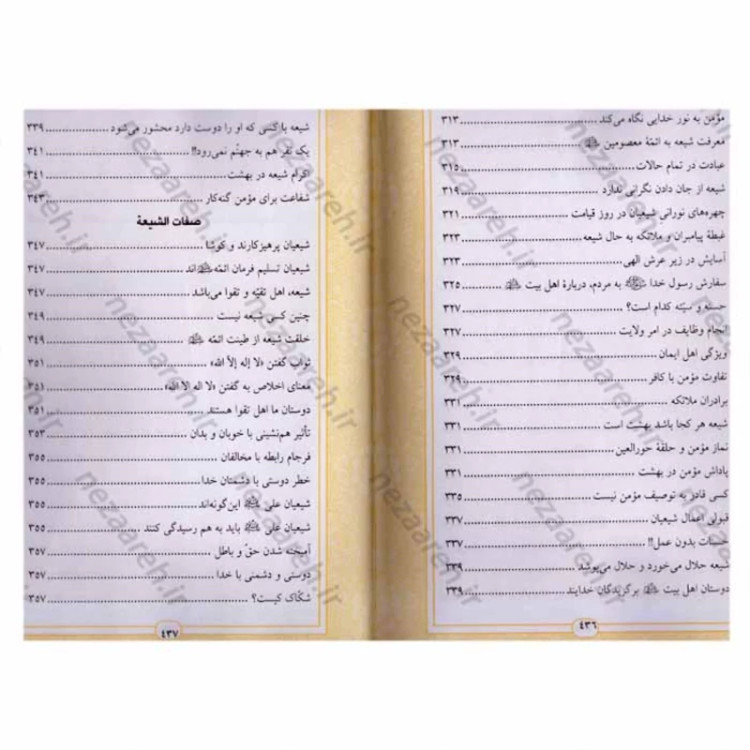 مؤمن به نور خدایی نگاه می‌کند ۳۱۳
معرفت شیعه به ائمّۀ معصومین ۳۱۳
عبادت در تمام حالات ۳۱۵
شیعه از جان دادن نگرانی ندارد ۳۱۹
چهره‌های نورانی شیعیان در روز قیامت ۳۲۱
غبطۀ پیامبران و ملائکه به حال شیعه ۳۲۳
آسایش در زیر عرش الهی ۳۲۳
سفارش رسول خدا ﷺ به مردم، دربارۀ اهل بیت ۳۲۵
حسنه و سیّئه کدام است؟ ۳۲۷
انجام وظایف در امر ولایت ۳۲۷
ویژگی اهل ایمان ۳۲۹
تفاوت مؤمن با کافر ۳۲۹
برادران ملائکه ۳۳۱
شیعه هر کجا باشد بهشت است ۳۳۱
نماز مؤمن و حلقۀ حورالعین ۳۳۱
پاداش مؤمن در بهشت ۳۳۱
کسی قادر به توصیف مؤمن نیست ۳۳۵
قبولی اعمال شیعیان ۳۳۷
حسنات بدون عمل!! ۳۳۷
شیعه حلال می‌خورد و حلال می‌پوشد ۳۳۹
دوستان اهل بیت برگزیدگان خدایند ۳۳۹
۴۳۶
شیعه با کسی که او را دوست دارد محشور می‌شود ۳۳۹
یک نفر هم به جهنّم نمی‌رود!! ۳۴۱
اکرام شیعه در بهشت ۳۴۱
شفاعت برای مؤمن گنه‌کار ۳۴۳
صفات الشیعة
شیعیان پرهیزکارند و کوشا ۳۴۷
شیعیان تسلیم فرمان ائمّه‌اند ۳۴۷
شیعه، اهل تقیّه و تقوا می‌باشد ۳۴۷
چنین کسی شیعه نیست ۳۴۹
خلقت شیعه از طینت ائمّه ۳۴۹
ثواب گفتن «لا إله إلّا الله» ۳۵۱
معنای اخلاص به گفتن «لا اله الا الله» ۳۵۱
دوستان ما اهل تقوا هستند ۳۵۱
تأثیر هم‌نشینی با خوبان و بدان ۳۵۳
فرجام رابطه با مخالفان ۳۵۵
خطر دوستی با دشمنان خدا ۳۵۵
شیعیان علی این‌گونه‌اند ۳۵۵
شیعیان علی باید به هم رسیدگی کنند ۳۵۵
آمیخته شدن حقّ و باطل ۳۵۷
دوستی و دشمنی با خدا ۳۵۷
شکّاک کیست؟ ۳۵۷
۴۳۷
nezaareh.ir